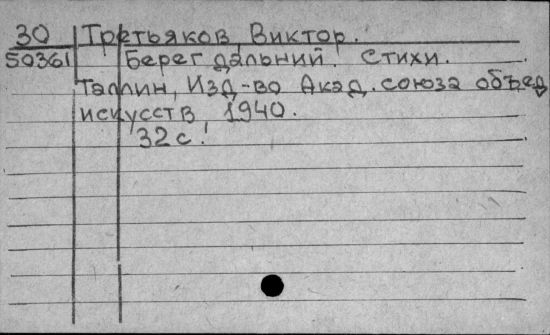 30 Третьяков, Виктор.
50361 Берег дальний. Стихи.
Таллин, Изд-во Акад. союза объед
искусств, 1940.
32 с.